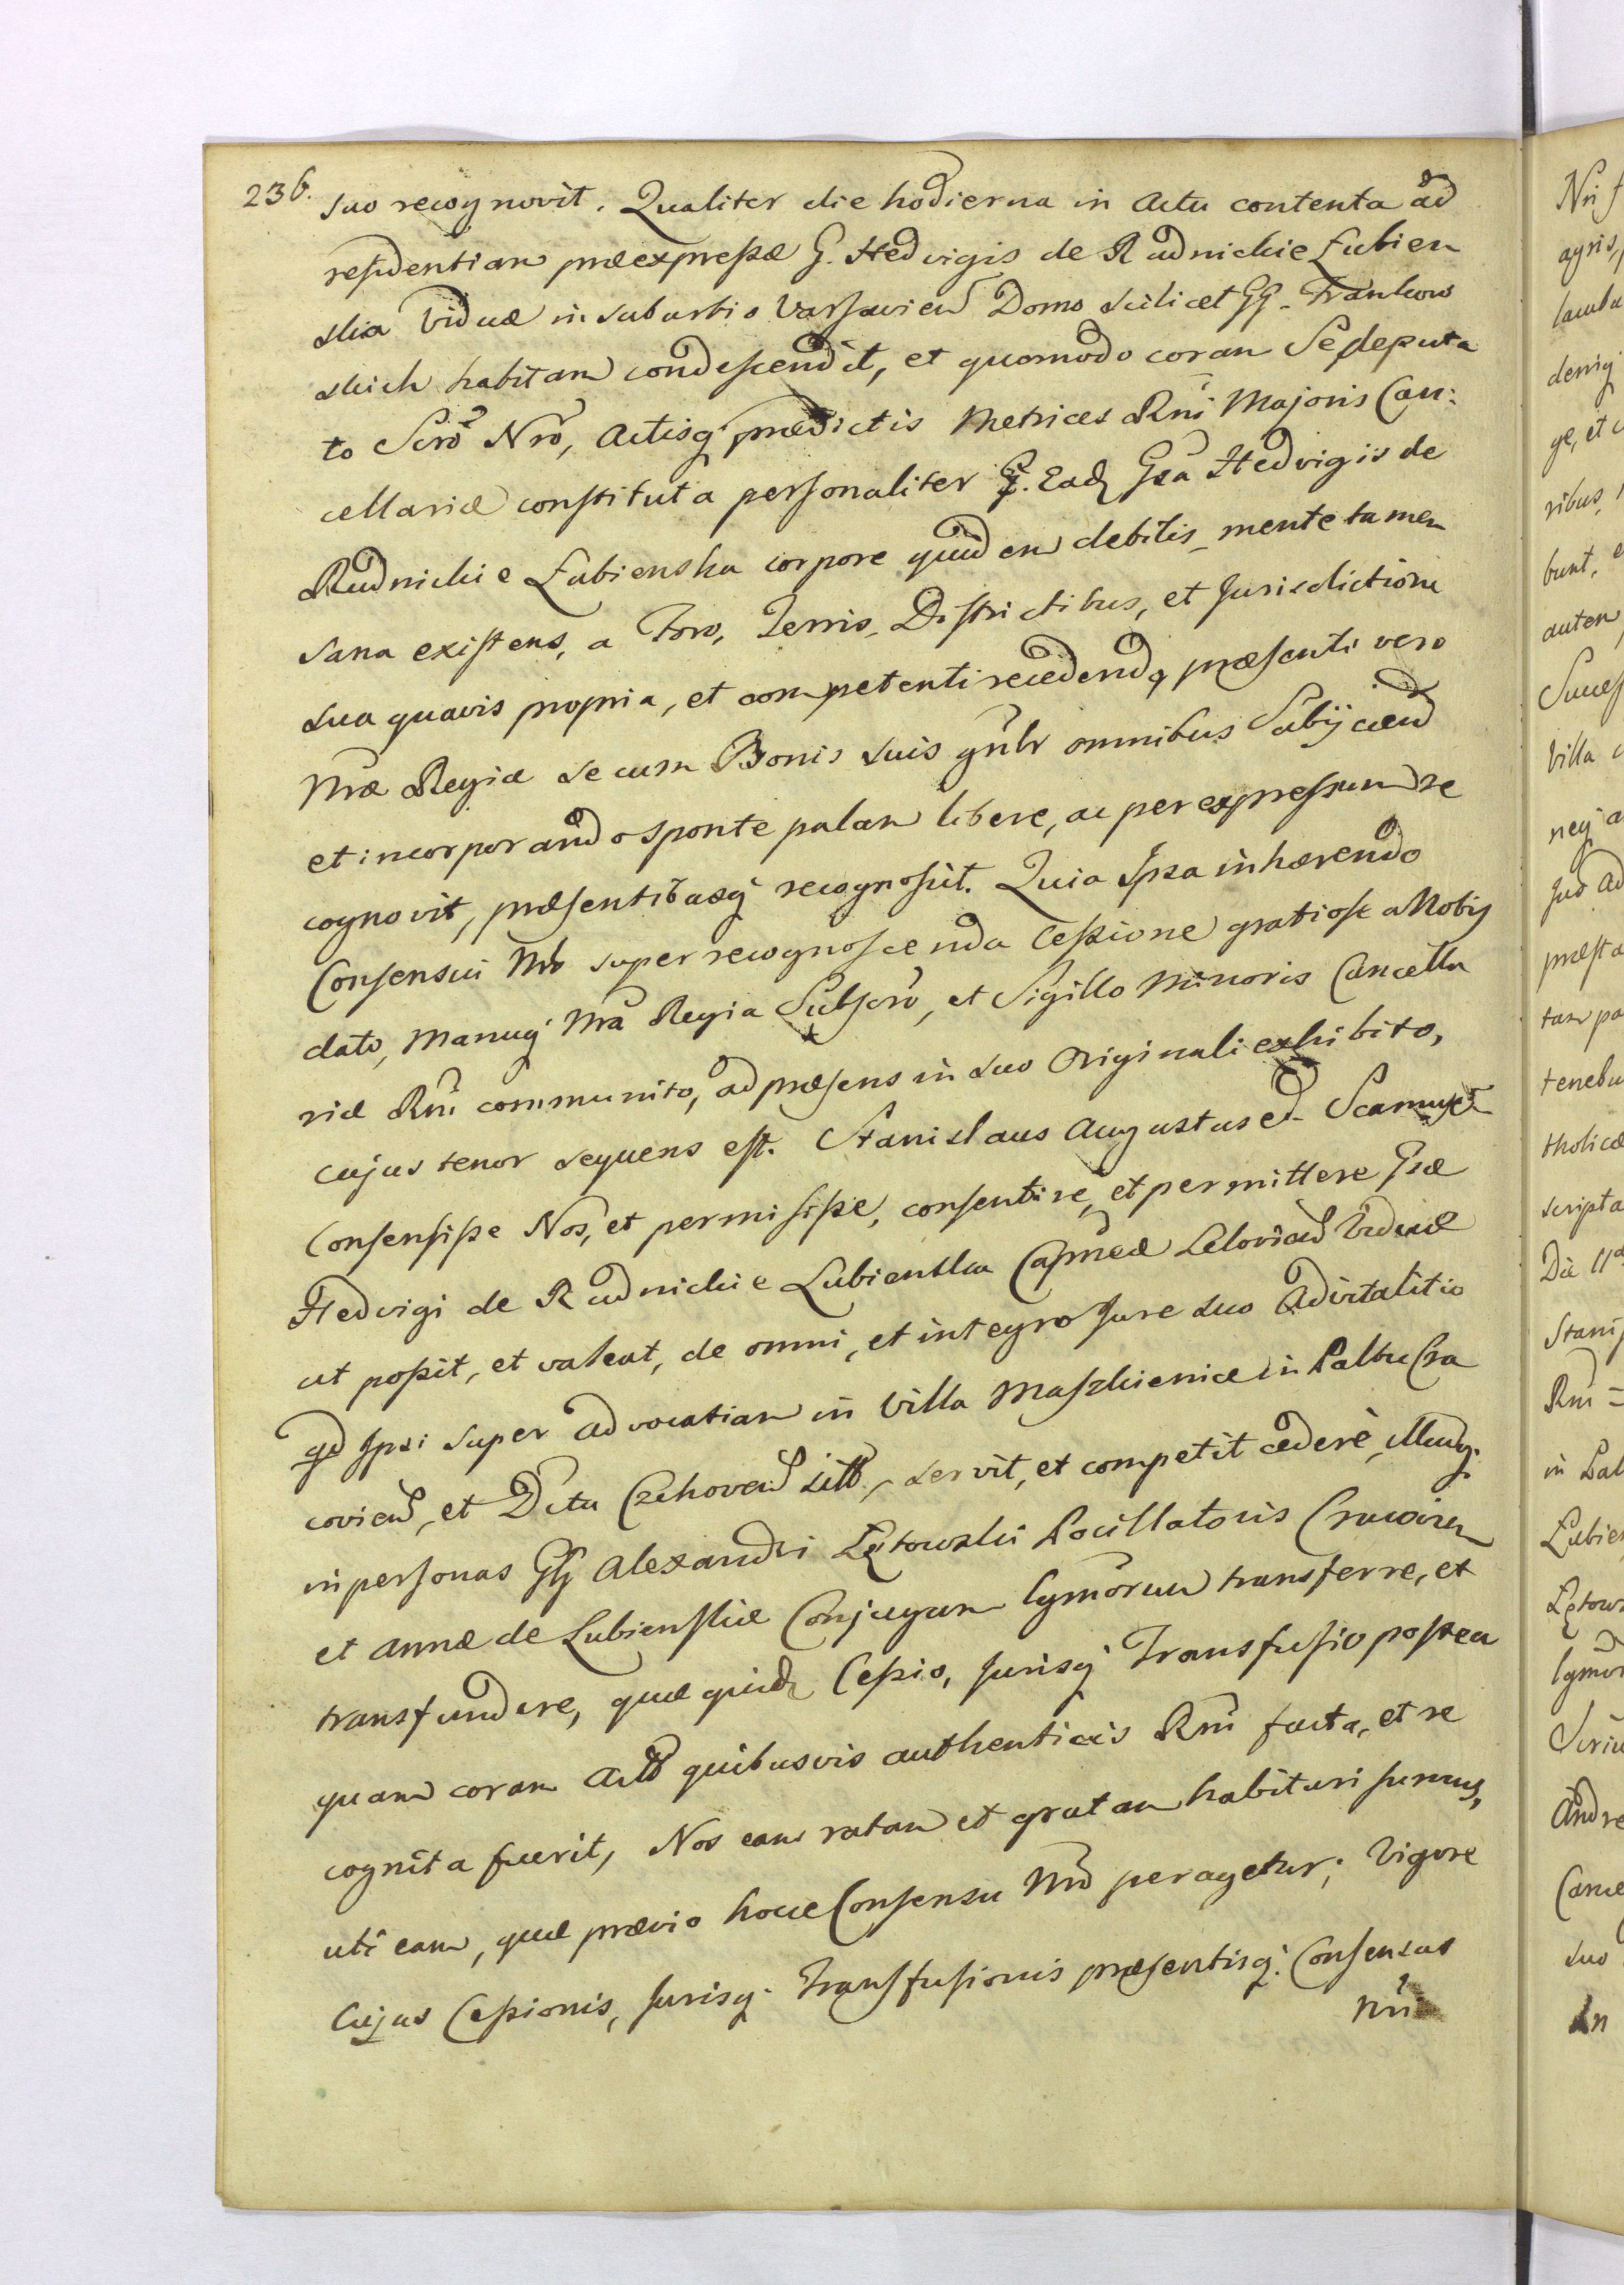 236.
suo recognovit. Qualiter die hodierna in Actu contenta ad
residentiam præexpressæ G. Hedvigis de Rudnickie Łubien
skia Viduæ in suburbio Varsavien Domo scilicet GG. Frankow
skich habitam condescendit, et quomodo coram Se deputa
to Scrō Nrō, Actisq́ prædictis Metrices Rni Majoris Can:
cellariæ constituta personaliter G. Eadȝ Gsa Hedvigis de
Rudnickie Łubienska corpore quidem debilis, mente tamen
sana existens, a Foro, Terris, Districtibus, et Jurisdictione
sua quavis propria, et competenti recedendo, præsenti vero
Nræ Regiæ se cum Bonis suis gnlr omnibus Subijciend
et incorporando sponte palam libere, ac per expressum re
cognovit, præsentibusq́ recognoscit. Quia Ipsa inhærendo
Consensui Nro super recognoscenda Cessione gratiose a Nobis
dato, Manuq́ Nra Regia Subscrō, et Sigillo Minoris Cancella
riæ Rni communito, ad præsens in suo Originali exhibito,
cujus tenor sequens est. Stanislaus Augustus et Scamus
Consensisse Nos, et permisisse, consentire, et permittere Gsæ
Hedvigi de Rudnickie Lubienska Capneæ Lelovien Viduæ
ut possit, et valeat, de omni, et integro Jure suo Advitalitio
qd Ipsi super Advocatiam in Villa Maszkienice in Palttu Cra
covien, et Dctu Czchovien sitt, servit, et competit cedere, illudq́.
in personas GG Alexandri Łętowski Pocillatoris Cracovien
et Annæ de Lubienskie Conjugum lgmorum transferre, et
transfundere, quæ quidȝ Cessio, Jurisq́ Transfusio postea
quam coram Actis quibusvis authenticis Rni facta, et re
cognita fuerit, Nos eam ratam et gratam habituri sumus,
uti eam, quæ prævio hocce Consensu Nro peragetur; Vigore
Cujus Cessionis, Jurisq́. Transfusionis præsentisq́. Consensus
Nri